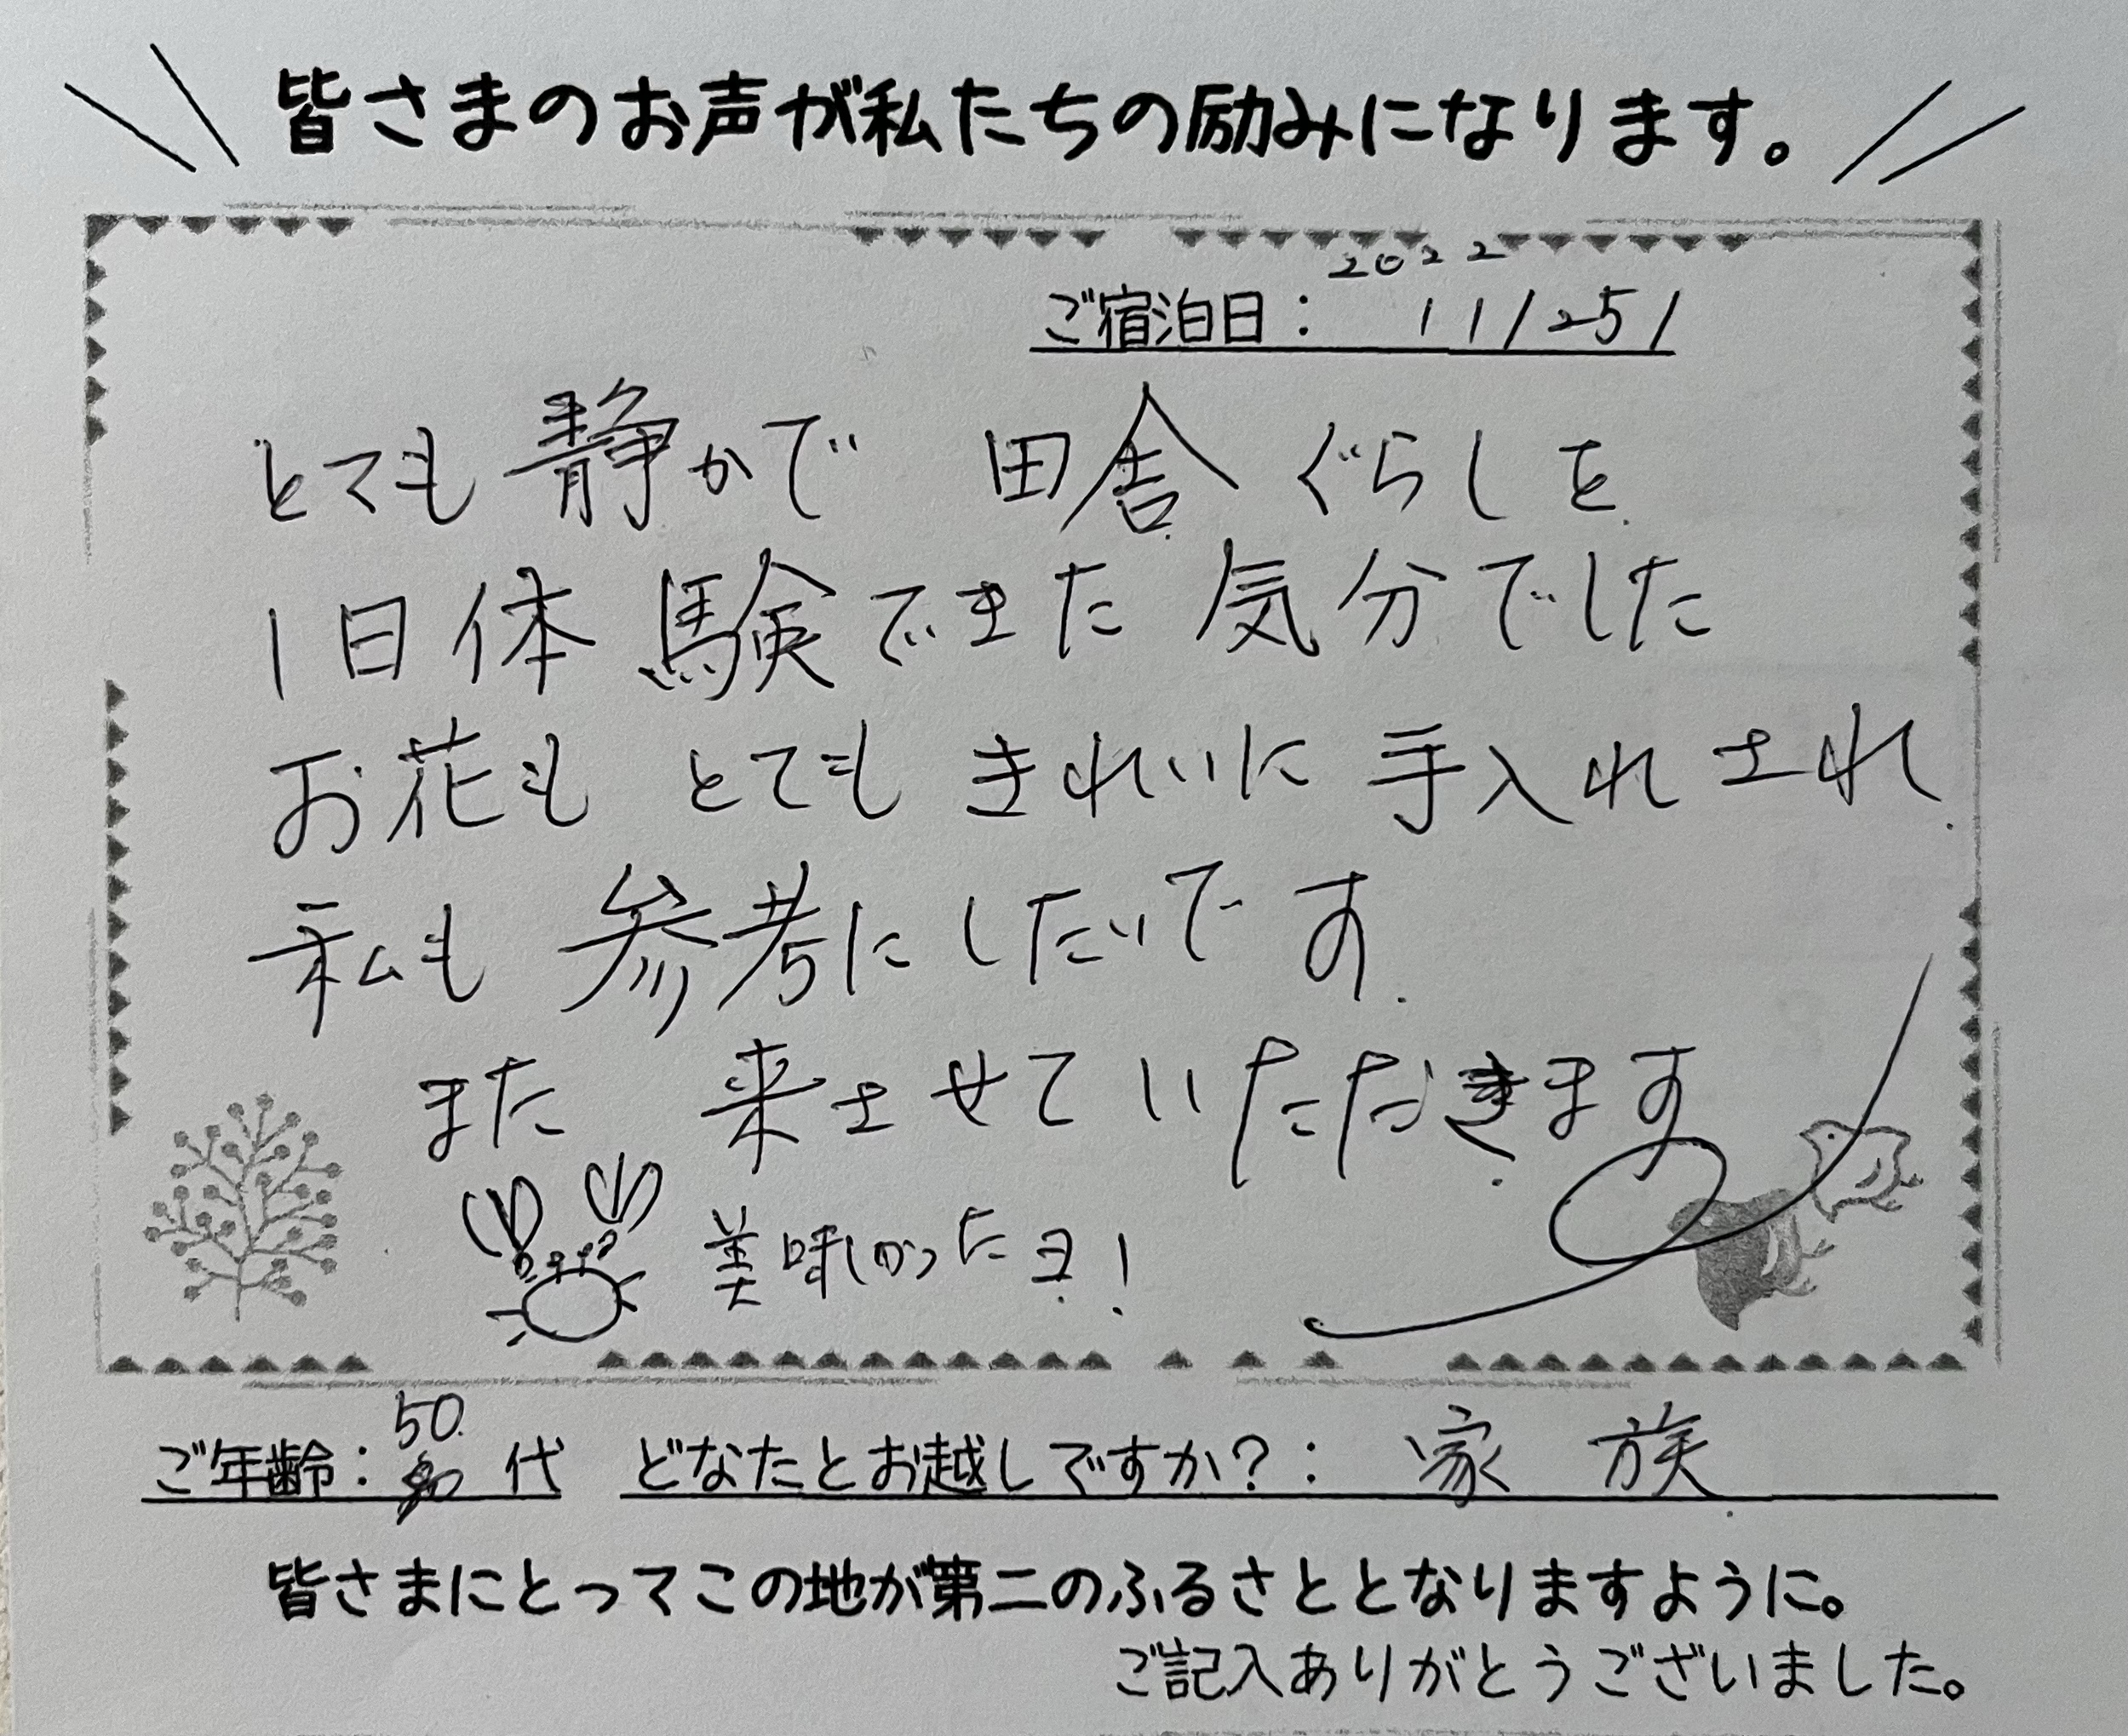 皆さまのお声が私たちの励みになります。
2022
ご宿泊日： 11/25/
とても静かで 田舎ぐらしを
1日体験できた気分でした
お花も とても きれいに 手入れされ
私も 参考にしたいです.
また 来させていただきます
美味しかったヨ!
50
ご年齢： 代 どなたとお越しですか？： 家族
皆さまにとってこの地が第二のふるさととなりますように。
ご記入ありがとうございました。